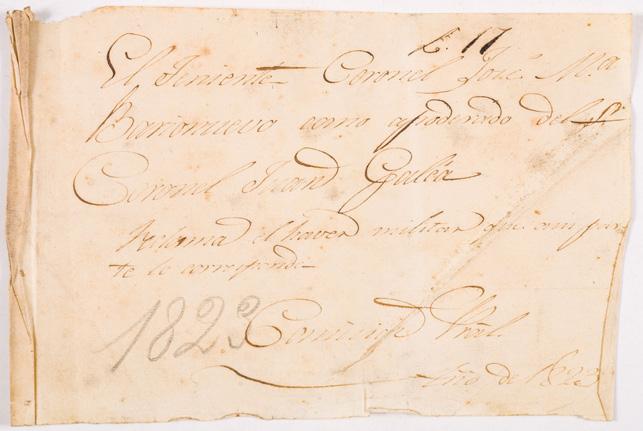 L. 17
El Teniente Coronel José Mª
Barionuevo como apoderado del Sr
Coronel Juan Galea
Reclama el haver militar que a mi par-
te le corresponde
1823
Comision Pral.
Año de 1823